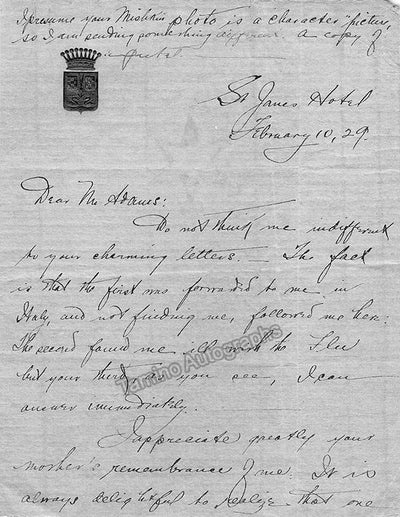 I presume your Mishkin photo is a character "picture,"
so I am sending something different. A copy of
St James Hotel
February 10, 29.
Dear Mr Adams:
Do not think me indifferent
to your charming letters. - The fact
is that the first was forwarded to me in
Italy, and not finding me, followed me here.
The second found me ill with the Flu
but your third, as you see, I can
answer immediately.
I appreciate greatly your
mother's remembrance of me. It is
always delightful to realize that one
Tamino Autographs